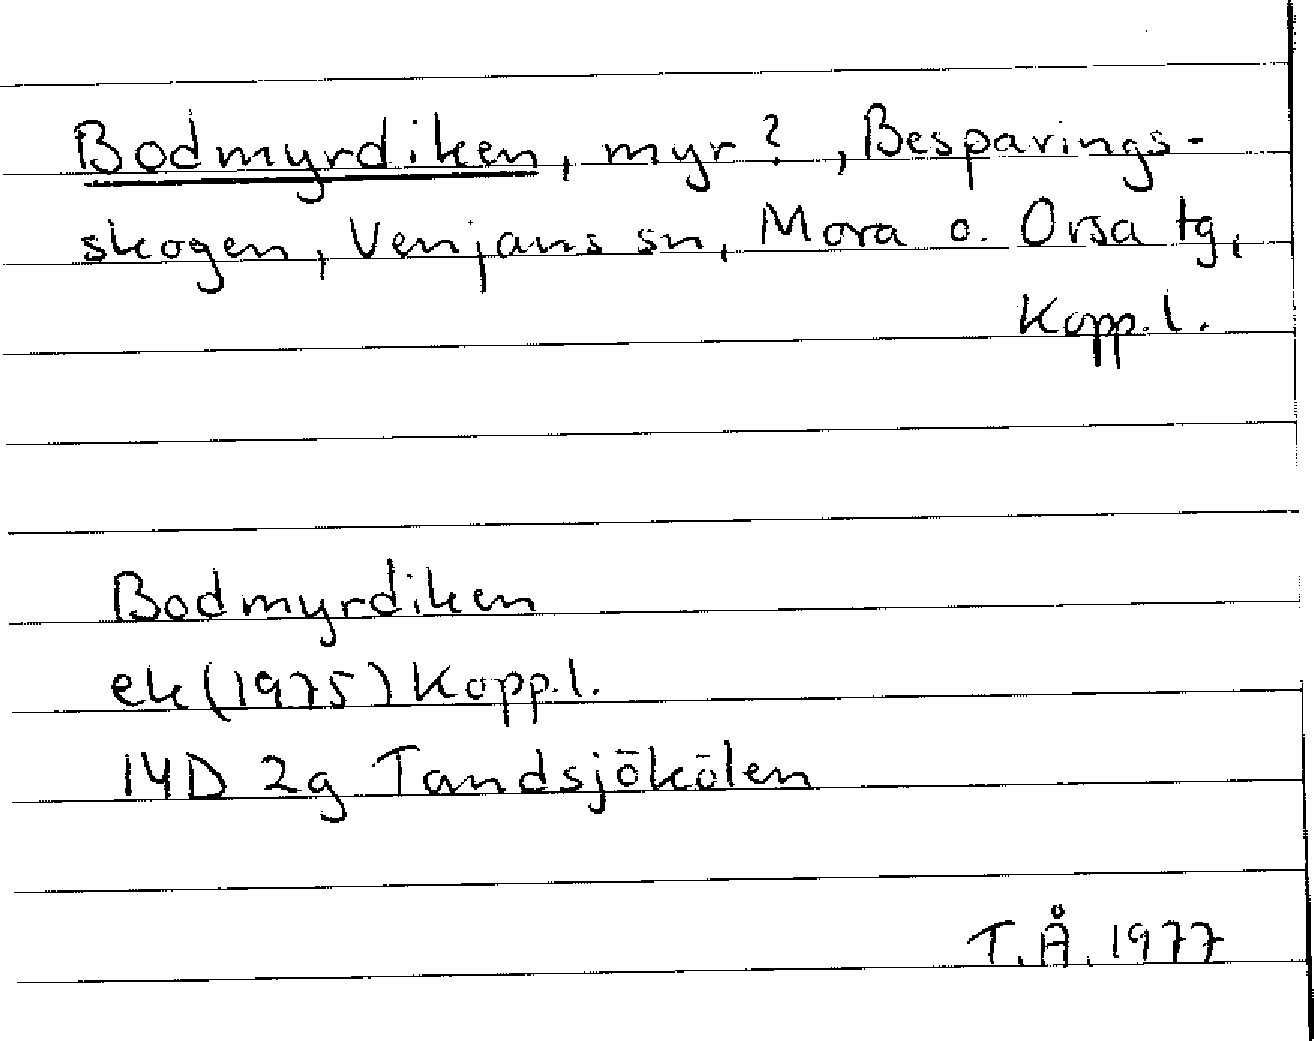 Bodmyrdiken, myr?, Besparings-
skogen, Venjans sn, Mora o. Orsa tg,
Kopp.l.
Bodmyrdiken
ek (1975) Kopp.l.
14D 2g Tandsjökölen
T.Å. 1977